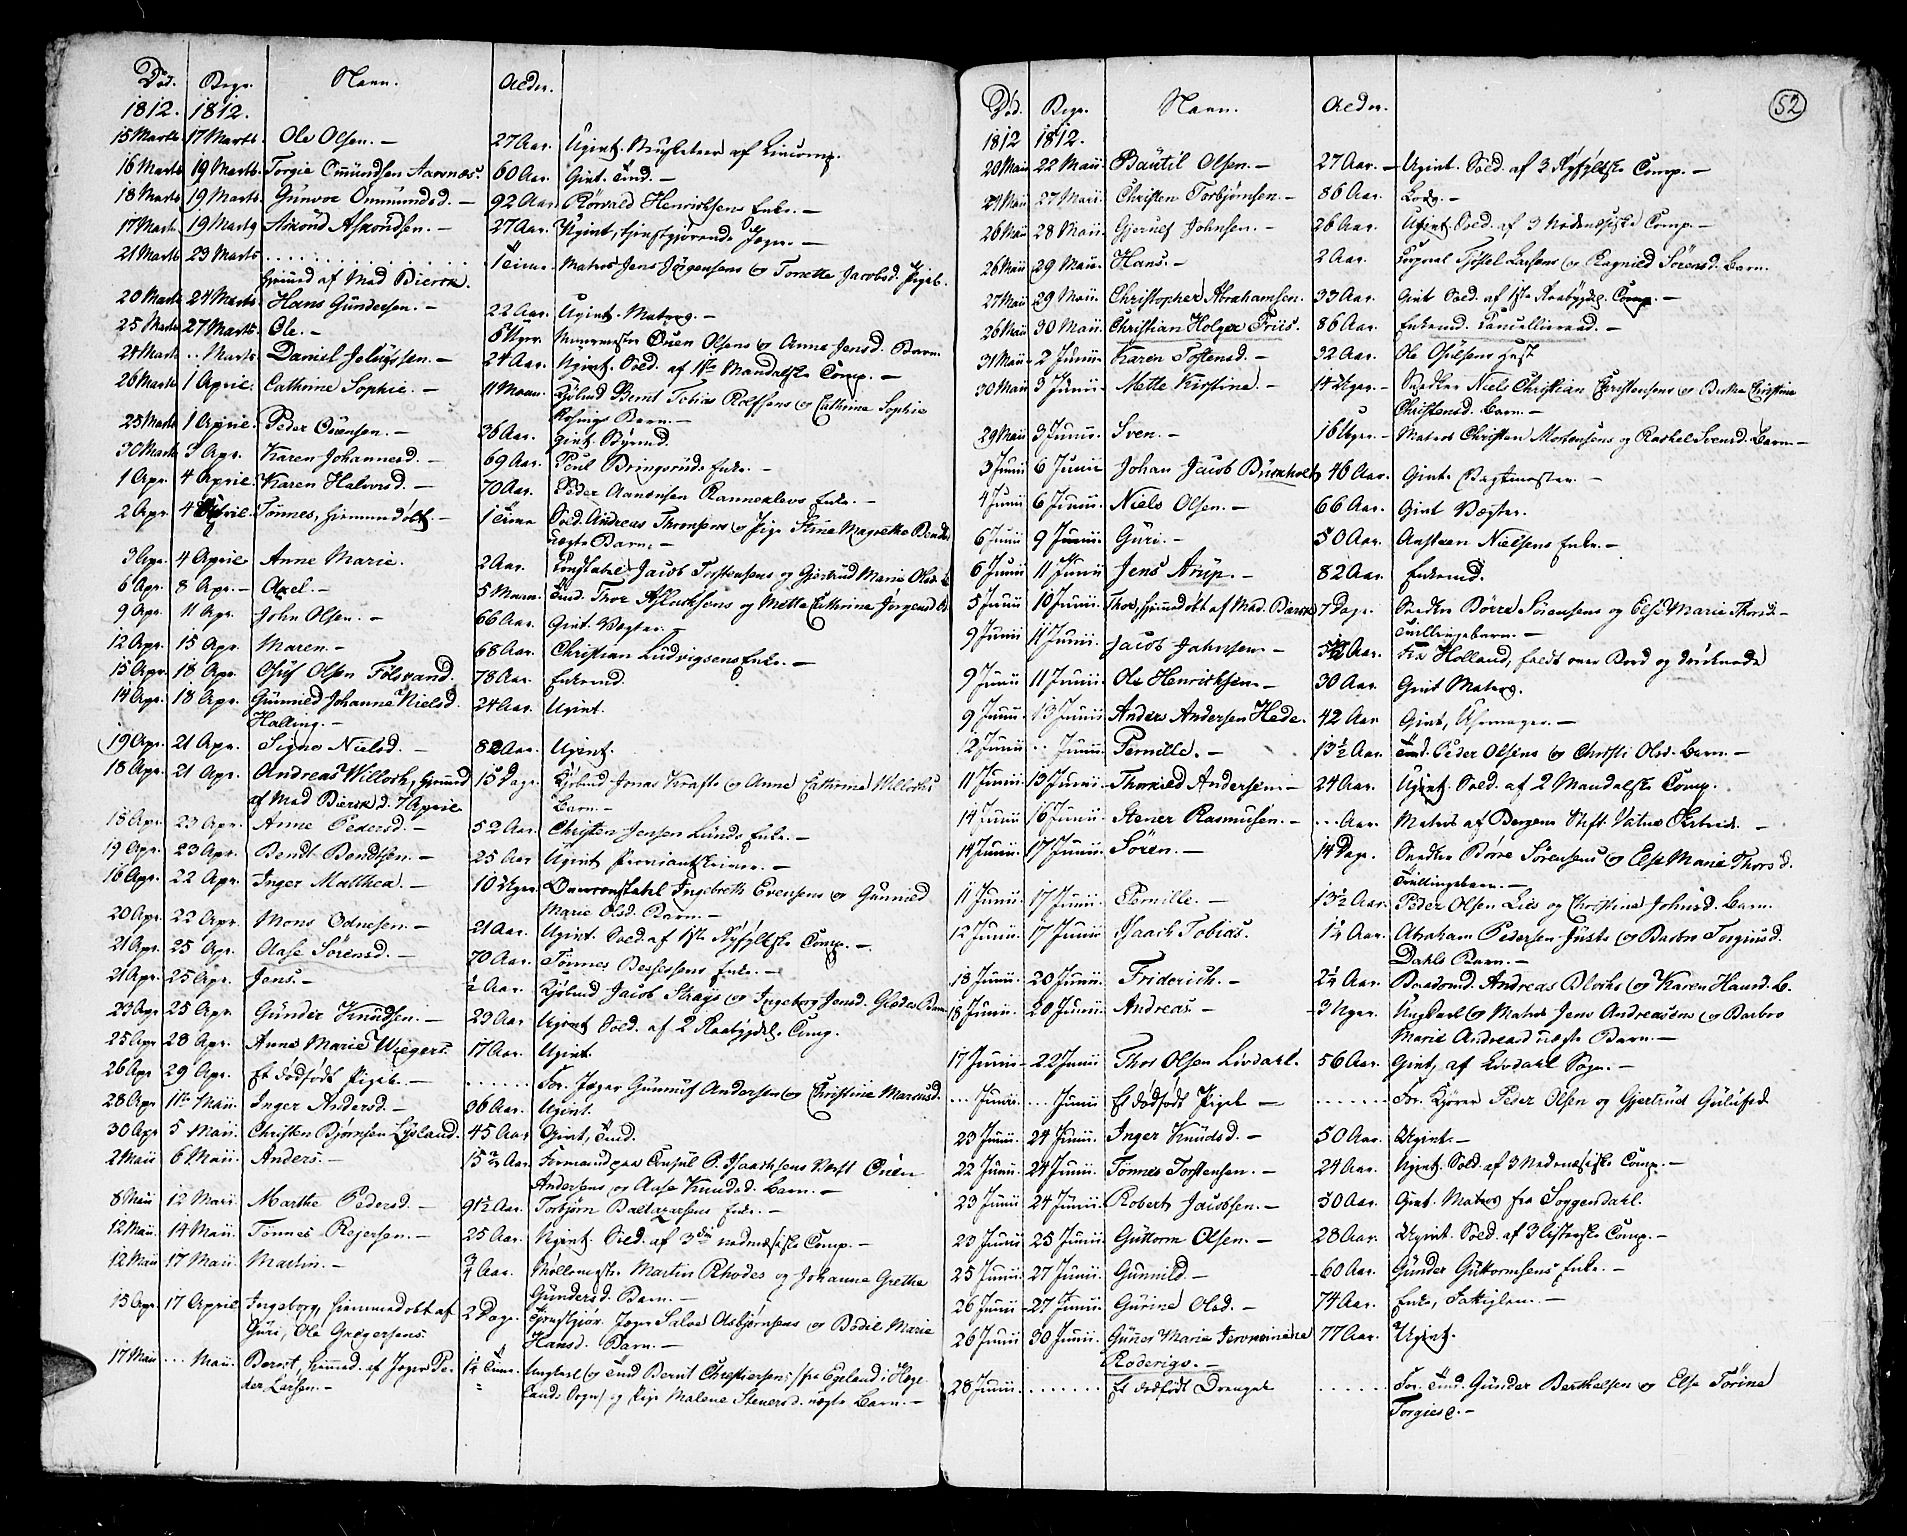 Død. Begr. Navn. Alder.
1812. 1812.
15 Marts 17 Marts Ole Olsen. — 27 Aar. Ugivt. af Livcomp.
16 Marts 19 Marts. Torgie Omundsen Aarenæs. 60 Aar. Givt. —
18 Marts 19 Marts. Gunvor Ommundsd. — 92 Aar Rörvald Henrichsens Enke. —
17 Marts 19 Marts Asmond Asmondsen. — 27 Aar. Ugivt, tienstgjørende Jæger. —
21 Marts 23 Marts . . . . . . . . . 1 Time. Matros Jens Jørgensens og Tonette Jacobsd. Pigeb.
hiemmed. af Mad Bierck.
20 Marts 24 Marts. Hans Gundersen. — 22 Aar. Ugivt. Matros. —
25 Marts 27 Marts. Ole. — 6 Uger. Ouen Olsens og Anna Jensd. Barn
24 Marts . . Marts. Daniel — 24 Aar. Ugivt. Sold. af 1ste Mandalske Comp. —
26 Marts 1 April. Cathrine Sophie. — 11 Maan. Kjøbmd Bernt Tobias Rolfsens og Cathrine Sophie
Barn. —
25 Marts 1 April. Peder Ouensen. — 36 Aar. givt. Byemd.
30 Marts 3 Apr. Karen Johannesd. — 69 Aar. Poul Bringsruds Enke. —
1 Apr. 4 April. Karen Halvorsd. — 70 Aar. Peder Aanensen Ranneklevs Enke. —
2 Apr. 4 April. Tönnes, hiemmedøbt — 1 Time Sold. Andreas Thomsens og Pige Anne Magrethe
uægte Barn. —
3 Apr. 4 April Anne Marie. 2 Aar. Jacob Torstensens og Giertrud Marie Olsd. B.
6 Apr. 8 Apr. — Axel. — 5 Maan. Thor Aslachsens og Mette Cathrine Jørgensd. B.
9 Apr. 11 Apr. John Olsen. — 66 Aar. Givt. Vægter. —
12 Apr. 15 Apr. Maren. — 68 Aar. Christian Ludvigsens Enke. —
15 Apr. 18 Apr. Osuf Olsen Fölsvand. 78 Aar. Enkemd.
14 Apr. 18 Apr. Gunnild Johanne Nielsd. 24 Aar. Ugivt.
Halling. —
19 Apr. 21 Apr. Signe Nielsd. — 82 Aar. Ugivt.
18 Apr. 21 Apr. Andreas Willoch, hiemmed 15 Dage. Kjøbmd Jonas Krafts og Anne Cathrine Willochs
af Mad Bierck d. 7 April. Barn. —
18 Apr. 23 Apr. Anne Pedersd. — 52 Aar. Christen Jensen Lunds Enke. —
19 Apr. 23 Apr. Bendt Bendtsen. — 25 Aar Ugivt, Proviantskriver. —
16 Apr. 22 Apr. Inger Mallhea. — 10 Uger. Ingebreth Evensens og Gunnild
Marie Olsd. Barn. —
20 Apr. 22 Apr. Mons — 21 Aar. Ugivt. Sold. af 1ste Ryfylkske Comp. —
21 Apr. 25 Apr. Aase Sörensd. — 70 Aar. Tönnes Enke. —
21 Apr. 25 Apr. Jens. — ½ Aar. Kjøbmd Jacob Strays og Ingeborg Jensd. Barn
23 Apr. 25 Apr. Gunder Knudsen. — 29 Aar Ugivt Sold. af 2 Raabygdel. Comp.
25 Apr. 28 Apr. Anne Marie Wiegers. 17 Aar. Ugivt.
26 Apr 29 Apr. Et dødfødt Pigeb. — . . . . . . For. Jæger Gunnuf Andersen og Christine Marcusd.
28 Apr. 1te Maii. Inger Andersd. — 36 Aar. Ugivt.
30 Apr 5 Maii. Christen Bjørnsen Lysland. 45 Aar Givt,
2 Maii 6 Maii. Anders. — Formand paa Consul P. Isaachsens Verft Ouen
Andersens og Aase Knudsd. Barn. —
8 Maii 12 Maii. Marthe Pedersd. — 91½ Aar. Torbjørn Baltazarsens Enke. —
12 Maii. 14 Maii. Tönnes Rejersen. — 25 Aar. Ugivt. Sold. af 3die nednæsiske Comp. —
12 Maii 17 Maii. Martin. — ¾ Aar. Møllemester Martin Rhodes og Johanne Grethe
Gundersd. Barn. —
15 Apr. 17 April Ingeborg, hiemmedøbt af 2 Dage. Tienstgjør. Jæger Salve Osbjørnsens og Bodil Marie
Guri, Ole Gregersens Hansd. Barn. —
17 Maii . . . Maii. Berent, hiemmd. af Jæger Pe- ½ Time. Ungkarl og Bernt Christiensens /fra Egeland i Hæge-
der Larsen. — lands Sogn/ og Pige Malene Stenersd. uægte Barn. —
52
Død. Begr. Navn. Alder.
1812 1812.
20 Maii 22 Maii. Böutil Olsen. — 27 Aar. — Ugivt. Sold. af 3 Ryfylkske Comp. —
24 Maii 27 Maii. Christen Torbjørnsen. — 86 Aar. Lods. —
26 Maii 28 Maii. Gjerulf Johnsen. — 26 Aar. Ugivt. Sold. af 3 Nednæsiske Comp. —
26 Maii 29 Maii. Hans. — 2 Aar. Corporal Tjöstel Larsens og Ragnild Sörensd. Barn.
27 Maii 29 Maii. Christopher Abrahamsen. 33 Aar. Givt Sold. af 1ste Raabygdel. Comp. —
26 Maii 30 Maii. Christian Holger Friis. 86 Aar. Enkemd. Cancelliraad. —
31 Maii 2 Junii. Karen Tostensd. — 32 Aar. Ole Osulsens
30 Maii 3 Junii. Mette Kirstine. — 14 Uger. — Snedker Niels Christian Christensens og Birthe Kirstine
Christensd. Barn. —
29 Maii 3 Junii. Sven. — 16 Uger. — Matros Christen Mortensens og Rachel Svensd. Barn. —
3 Junii 6 Junii Johan Jacob Birkholt, 46 Aar. Givt. Vagtmester. —
4 Junii 6 Junii. Niels Olsen. — 66 Aar. Givt Vægter.
6 Junii 9 Junii. Guri. — 50 Aar. Austeen Nielsens Enke. —
6 Junii 11 Junii Jens Arup. — 82 Aar. Enkemd.
5 Junii 10 Junii. Thor, hiemmedøbt af Mad. Bierck 7 Dage. Snedker Börre Sörensens og Else Marie Thorsd. —
Tvillingebarn. —
9 Junii 11 Junii. Jacob Jahnsen. — Aar. Fra Holland, faldt over Bord og druknede
9 Junii 11 Junii. Ole Henrichsen. — 30 Aar. Givt Matros.
9 Junii 13 Junii Anders Andersen Hede. 42 Aar Givt, Uhrmager. —
12 Junii . . Junii. Pernille. — 13½ Aar. Peder Olsens og Christi Olsd. Barn. —
11 Junii. 13 Junii. Thorkild Andersen. — 24 Aar. Ugivt. Sold. af 2 Mandalske Comp.
14 Junii 16 Junii. Stener Rasmusen. — . . . Aar. Matros af Bergens Stift. —
14 Junii. 17 Junii. Sören. — 14 Dage. Snedker Börre Sörensens og Else Marie Thorsd.
Tvillingebarn. —
11 Junii. 17 Junii. Pernille. — 13½ Aar. Peder Olsen Lies og Christine Johnsd. Barn.
12 Junii. 17 Junii Isaach Tobias. 1½ Aar. Abraham Pedersen Justs og Barbro Torgiusd.
Dahls Barn. —
18 Junii. 20 Junii. Friderich. — 2½ Aar. Baadsmd. Andreas Blochs og Karen Hansd. B.
18 Junii. 20 Junii. Andreas. — 3 Uger. Ungkarl og Matros Jens Andreasens og Barbro
Marie Andreasd uægte Barn. —
17 Junii. — 22 Junii Thor Olsen Livdahl. 56 Aar. Givt, af Livdahl Sogn. —
. . . Junii . . . Junii Et dødfødt Pigeb — . . . . . . . For. Kjörer Peder Olsen og Gjertrud Gulufsd.
23 Junii. 24 Junii. Inger Knudsd. — 50 Aar. Ugivt. —
22 Junii. 24 Junii. Tönnes Torstensen. — 24 Aar. Ugivt. Sold. af 3 Nednæsiske Comp. —
23 Junii 24 Junii. Robert Jacobsen. — 30 Aar. Givt. Matros fra Soggendahl.
23 Junii 25 Junii. Guttorm Olsen. — 28 Aar. Ugivt. Sold. af 3 listerske Comp. —
25 Junii 27 Junii. Gunnild. — 60 Aar. Gunder Guttormsens Enke. —
26 Junii 27 Junii. Gurine Olsd. — 74 Aar. Enke, Fattiglem. —
26 Junii 30 Junii. Marie Jeronimine 77 Aar. Ugivt.
Roderigo. —
28 Junii. . . . . . . . Et dødfødt Drengeb . . . . . . For. Gunder Berthelsen og Else Torine
Torgiesd. —